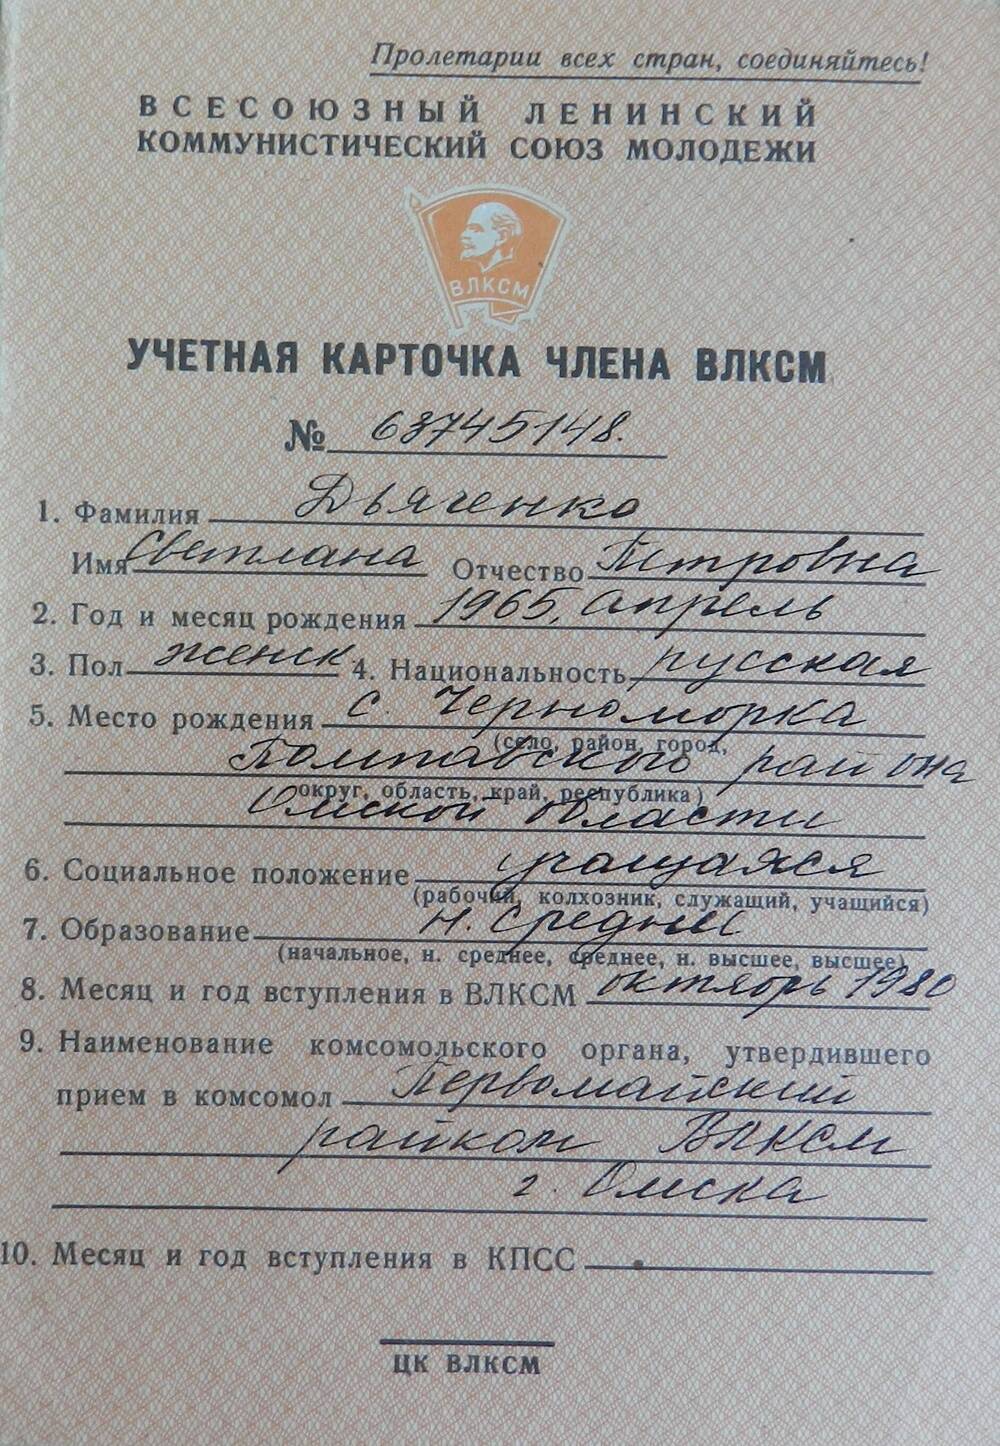 Пролетарии всех стран, соединяйтесь!
ВСЕСОЮЗНЫЙ ЛЕНИНСКИЙ
КОММУНИСТИЧЕСКИЙ СОЮЗ МОЛОДЕЖИ
ВЛКСМ
УЧЕТНАЯ КАРТОЧКА ЧЛЕНА ВЛКСМ
№ 63745148.
1. Фамилия Дьяченко
Имя Светлана Отчество Петровна
2. Год и месяц рождения 1965, апрель
3. Пол женск 4. Национальность русская
5. Место рождения с. Черноморка
(село, район, город,
Полтавского района
округ, область, край, республика)
Омской области
6. Социальное положение учащаяся
(рабочий, колхозник, служащий, учащийся)
7. Образование н. средн
(начальное, н. среднее, среднее, н. высшее, высшее)
8. Месяц и год вступления в ВЛКСМ октябрь 1980
9. Наименование комсомольского органа, утвердившего
прием в комсомол Первомайский
райком ВЛКСМ
г. Омска
10. Месяц и год вступления в КПСС
ЦК ВЛКСМ